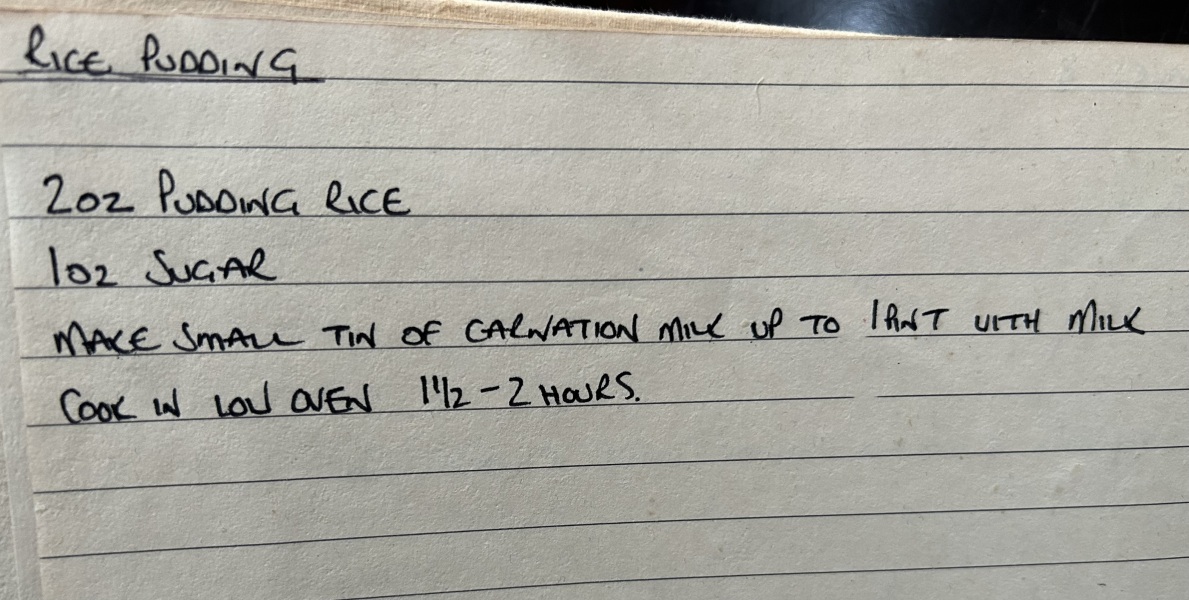 RICE PUDDING
2oz PUDDING RICE
1oz SUGAR
MAKE SMALL TIN OF CARNATION MILK UP TO 1PNT WITH MILK
COOK IN LOW OVEN 1 1/2 - 2 HOURS.